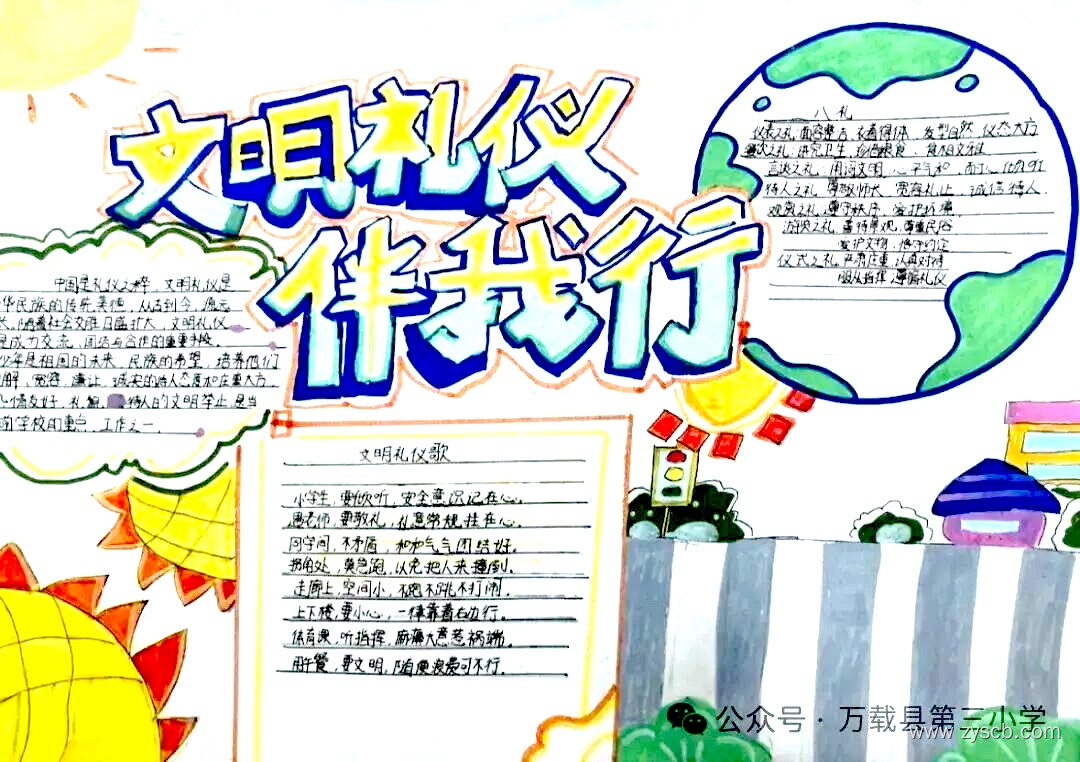 文明礼仪
伴我行
中国是礼仪之邦，文明礼仪是
华民族的传统美德，从古到今，源远
长，随着社会交往日益扩大，文明礼仪
是成力交流、团结与合作的重要手段。
少年是祖国的未来，民族的希望，培养他们
解、宽容、谦让、诚实的待人态度和庄重大方、
心情友好、礼貌待人的文明举止，是当
前学校的重点，工作之一
八礼
仪表之礼：面容整洁，衣着得体，发型自然，仪态大方
餐饮之礼：讲究卫生，珍惜粮食，食相文雅
言谈之礼：用词文明，心平气和，耐心倾听
待人之礼：尊敬师长，宽容礼让，诚信待人
观赏之礼：遵守秩序，爱护环境
游览之礼：善待景观，尊重民俗
爱护文物，恪守约定
仪式之礼：严肃庄重，认真对待
服从指挥，遵循礼仪
文明礼仪歌
小学生，要倾听，安全意识记在心。
遇老师，要敬礼，礼意常规挂在心。
同学间，不矛盾，和和气气团结好。
拐角处，莫急跑，以免把人来撞倒。
走廊上，空间小，不跑不跳不打闹。
上下楼，要小心，一律靠着右边行。
体育课，听指挥，麻痹大意惹祸端。
用午餐，要文明，随便浪费可不行。
公众号·万载县第三小学
www.zyscb.com